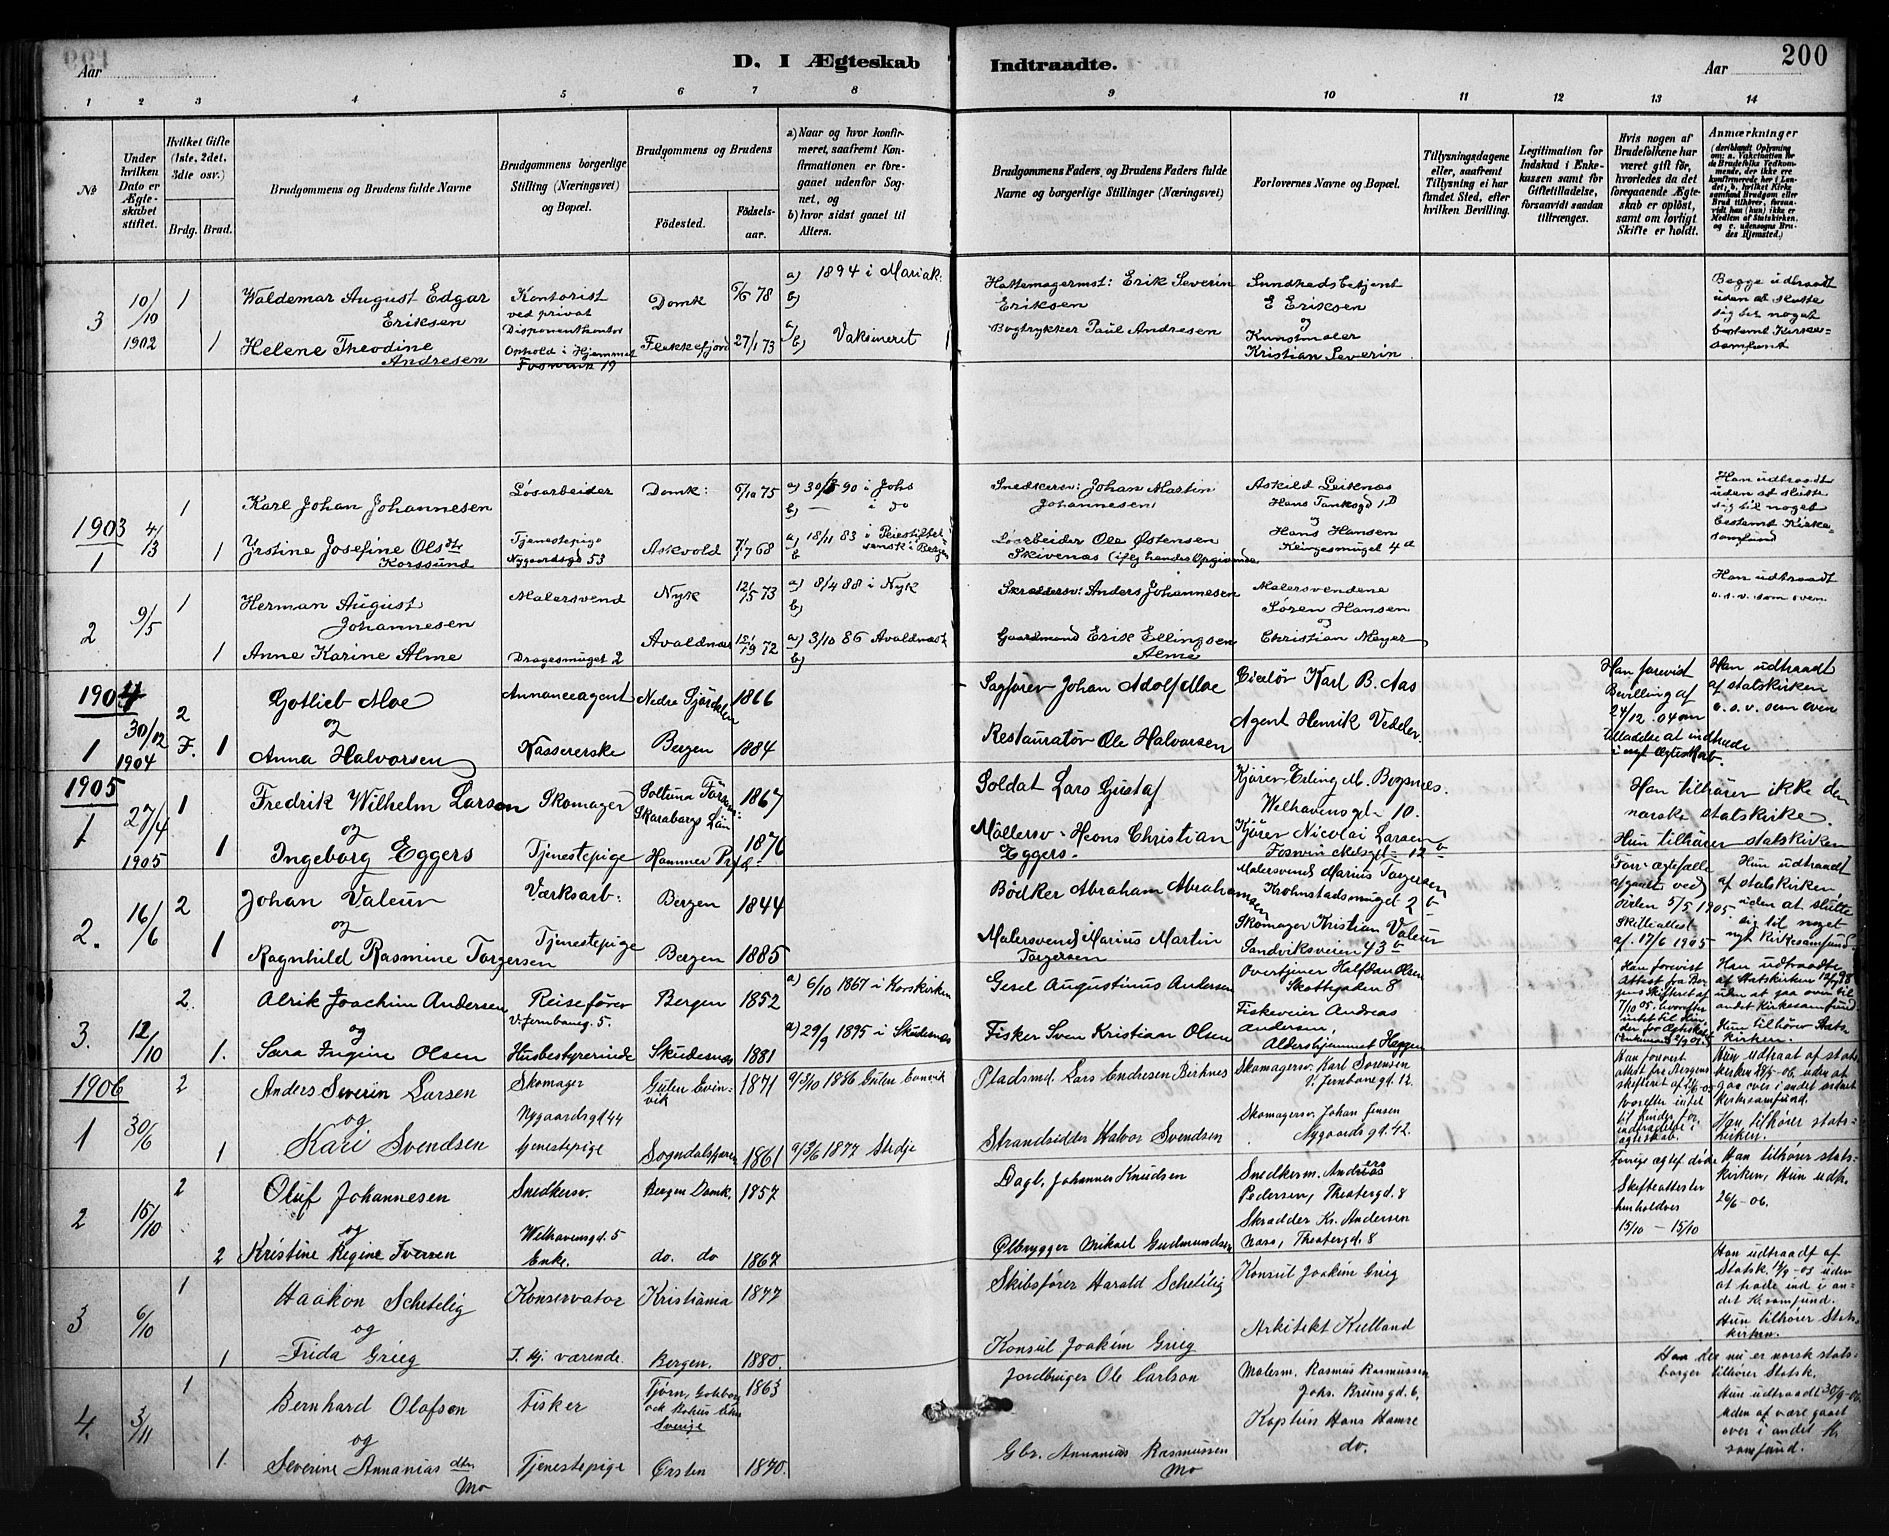 Aar
D. I Ægteskab
Indtraadte.
Aar
200
1 2 3 4 5 6 7 8 9 10 11 12 13 14
No
Under hvilken Dato er Ægteskabet stiftet.
Hvilket Gifte (1ste, 2det, 3die osv.)
Brdg. Brud.
Brudgommens og Brudens fulde Navne
Brudgommens borgerlige Stilling (Næringsvei) og Bopæl.
Brudgommens og Brudens
Fødested.
Fødselsaar.
a) Naar og hvor konfirmeret, saafremt Konfirmationen er foregaaet udenfor Sognet, og
b) hvor sidst gaaet til Alters.
Brudgommens Faders, og Brudens Faders fulde Navne og borgerlige Stillinger (Næringsvei)
Forlovernes Navne og Bopæl.
Tillysningsdagene eller, saafremt Tillysning ei har fundet Sted, efter hvilken Bevilling.
Legitimation for Indskud i Enkekassen samt for Giftetilladelse, forsaavidt saadan tiltrænges.
Hvis nogen af Brudefolkene har været gift før, hvorledes da det foregaaende Ægteskab er opløst, samt om lovligt Skifte er holdt.
Anmærkninger (deriblandt Oplysning om: a. Vakcination for de Brudefolks Vedkommende, der ikke ere konfirmerede her i Landet; b. hvilket Kirkesamfund Brudgom eller Brud tilhører, forsaavidt han (hun) ikke er Medlem af Statskirken, og c. udensogns Brudes Hjemsted.)
3 10/10 1902 1 Waldemar August Edgar Eriksen Kontorist ved privat Disponentkontor Domk 78 a) 1894 i Mariak: b)
Hattemagermst: Erik Severin Eriksen
Sundhedsbetjent E Eriksen og Kunstmaler Kristian Severin
Begge udtraadt uden at slutte sig til noget bestemt Kirkesamfunt
1 Helene Theodine Andresen Ophold i Hjemmet 19 Flekkefjord 27/1 73 a) b) Vaksineret
Bogtrykker Paul Andresen
1903
1 4/3 1 Karl Johan Johannesen Løsarbeider Domk: 6/10 75 a) 90 i Johs b) — i do
Snedkersv: Johan Martin Johannesen
Askild Leiknes Hans Tanksgd 1D og Hans Hansen Klingesmuget 4a
Han udtraadt uden at slutte sig til noget bestemt Kirkesamfund
1 Yrstine Josefine Olsdtr Korssund Tjenestepige Nygaardsgd 53 Askvold 68 a) 18/11 83 i i Bergen b
Løsarbeider Ole Østensen Skivenas (iflg hendes Opgivende
2 9/5 1 Herman August Johannesen Malersvend Nyk 12/5 73 a) 8/4 88 i Nyk b)
Skræddersv: Anders Johannesen
Malersvendene Søren Hansen og Christian Meyer
Han udtraadt o.s.v. som oven
1 Anne Karine Alme Dragesmuget 2 Avaldnæs 72 a) 3/10 86 Avaldnæs b)
Gaardmand Erik Ellingsen Alme
1904
1 30/12 1904 2 F. Gotlieb Moe Annonceagent Nedre Stjørdalen 1866
Sagfører Johan Adolf Moe
Karl B. Aas
Agent Henrik Vedeler
Han forevist Bevilling af 24/12 .04 om Tilladelse at indtræde i nyt Ægteskab.
Han udtraadt af statskirken o.s.v. som oven
og
1 Anna Halvorsen Kassererske Bergen 1884
Restauratør Ole Halvorsen
1905
1 27/4 1905 1 Fredrik Wilhelm Larson Skomager Skaraborgs Län 1867
Soldat Lars Gustaf
Kjørev Erling M. Welhavensgt 10.
Han tilhører ikke den norske statskirke.
og
1 Ingeborg Eggers Tjenestepige Hammer Prgd. 1876
Møllersv. Hans Christian Eggers.
Kjørev Nicolai Larsen 12b
Hun tilhører statskirken
2. 16/6 2 Johan Valeur Værksarb: Bergen 1844
Bødker Abraham Abrahamsen
Malersvend Marius Torgersen Krohnstadsmuget 2b
Skomager Kristian Valeur Sandviksveien 43b
Forr. ægtefælle afgaaet ved døden 5/5 1905 Skifteattest af 17/6 1905
Hun udtraadt af statskirken, uden at slutte sig til noget nyt kirkesamfund
og
1 Ragnhild Rasmine Torgersen Tjenestepige Bergen 1885
Malersvend Marius Martin Torgersen
3. 12/10 2. Alrik Joachim Andersen Reisefører V. Jernbaneg. 5. Bergen 1852 a) 6/10 1867 i Korskirken
Gesel Augustinus Andersen
Overtjener Halfdan Olsen Skottegaden 8
Fiskeveier Andreas Andersen, Aldershjemmet Haggen
Han forevist Attest fra Bergens Skifteret af 7/10 05, hvorefter intet til Hinder for Ægteskab
Han udtraadte af Statskirken 12/7 98 uden at gaa over til andet Kirkesamfund Hun tilhører Statskirken.
og
1. Sara Ingine Olsen Husbestyrerinde Skudesnæs 1881 a) 29/9 1895 i Skudesnæs
Fisker Sven Kristian Olsen
1906
1 30/6 2 Anders Severin Larsen Skomager Nygaardsgd 44 Gulen Evinvik 1871 1886 Gulen Evenvik
Pladsmd. Lars Endresen Berknes
Skomagersv. Karl Sørensen V. Jernbanegd. 12.
Skomagersv. Johan Jensen Nygaardsgd. 42.
Han forevist attest fra Bergens skifteret hvorefter intet til hinder for indtrædelse i ægteskab.
Hun udtraat af statskirken uden at gaa over i andet Kirkesamfund. Han tilhører statskirken.
og
1 Kari Svendsen tjenestepige Sogndalsfjæren 1861 1877 Stedje
Strandsidder Halvor Svendsen
2 15/10 2 Oluf Johannesen Snedkersv. Welhavensgd. 5 Bergen Domk. 1857
Dagl. Johannes Knudsen
Snedkerm. Andreas Pedersen, Theatergd. 8
Skrædder Kr. Andersen Theatergd. 8
Forrige ægtef. døde Skifteattester henholdsv 15/10 — 15/10
Han tilhører statskirken, Hun udtr. 26/6-06.
og
2 Kristine Regine Iversen Enke. do. do 1867
Ølbrygger Mikael Gudmundsen
3 6/10 1 Haakon Schetelig Konservator Kristiania 1877
Skibsfører Harald Schetelig
Konsul Joakim Grieg
Arkitekt Kielland
Han udtraadt af Statsk. uden at træde ind i andet K.samfund. Hun tilhører Statskirken.
og
1 Frida Grieg F. hj. værende Bergen. 1880.
Konsul Joakim Grieg
4. 3/11 1 Bernhard Olafson Fisker Tjørn, Gøteborg ock Bohus län Sverige 1863
Jordbruger Ole Carlson
Malerm. Rasmus Rasmussen Johs. Brunsgd. 6,
Kaptein Hans Hamre do.
Han der nu er norsk statsborger tilhører Statsk. Hun udtraadt 30/9-06. uden at være gaaet over i andet K.samfund.
og
1. Severine Annanias dtr. Mo Tjenestepige Ørsten 1870.
Gbr. Annanias Rasmussen Mo